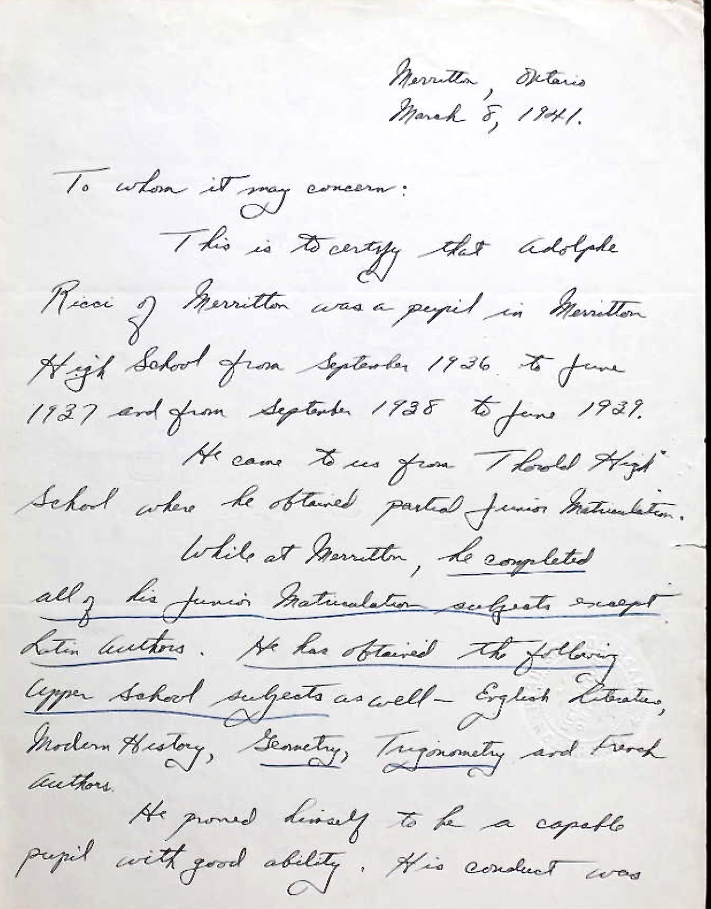 Merritton, Ontario
March 8, 1941.
To whom it may concern:
This is to certify that Adolphe
Ricci of Merritton was a pupil in Merritton
High School from September 1936 to June
1937 and from September 1938 to June 1939.
He came to us from Thorold High
School where he obtained partial Junior Matriculation.
While at Merritton, he completed
all of his Junior Matriculation subjects except
Latin Authors. He has obtained the following
Upper School subjects as well - English Literature,
Modern History, Geometry, Trigonometry and French
Authors.
He proved himself to be a capable
pupil with good ability. His conduct was